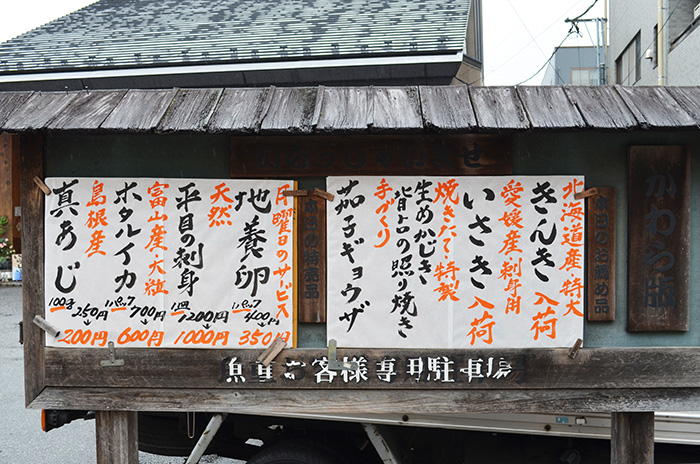 かわら版
北海道産・特大
きんき 入荷
愛媛産・刺身用
いさき 入荷
焼きたて・特製
生めかじき
背占の照り焼き
手づくり
茄子ギョウザ
月曜日のサービス
地養卵
1パック
400円
350円
天然
平目の刺身
1皿
1200円
1000円
富山産・大粒
ホタルイカ
1パック
700円
600円
島根産
真あじ
100g
250円
200円
魚重お客様専用駐車場